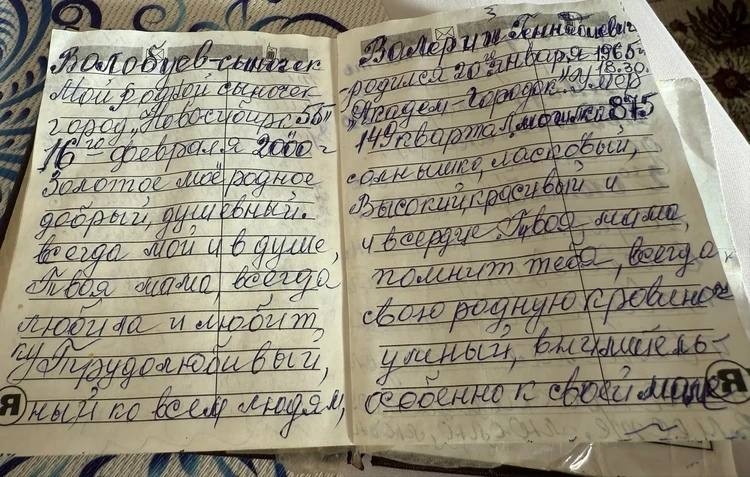 Волобуев-сыночек Валерий Геннадиевич
Мой родной сыночек родился 20го января 1965г
город "Новосибирск 55" "Академ-Городок. Умер 18.30.
16го февраля 2000г 149 квартал, могилка 875
Золотое моё родное солнышко, ласковый,
добрый, душевный. Высокий, красивый и
всегда мой и в душе, и в сердце. Твоя мама,
Твоя мама, всегда помнит тебя, всегда
любила и любит, свою родную кровиноч
ку Трудолюбивый, умный, вниматель-
Я ный ко всем людям, особенно к своей маме